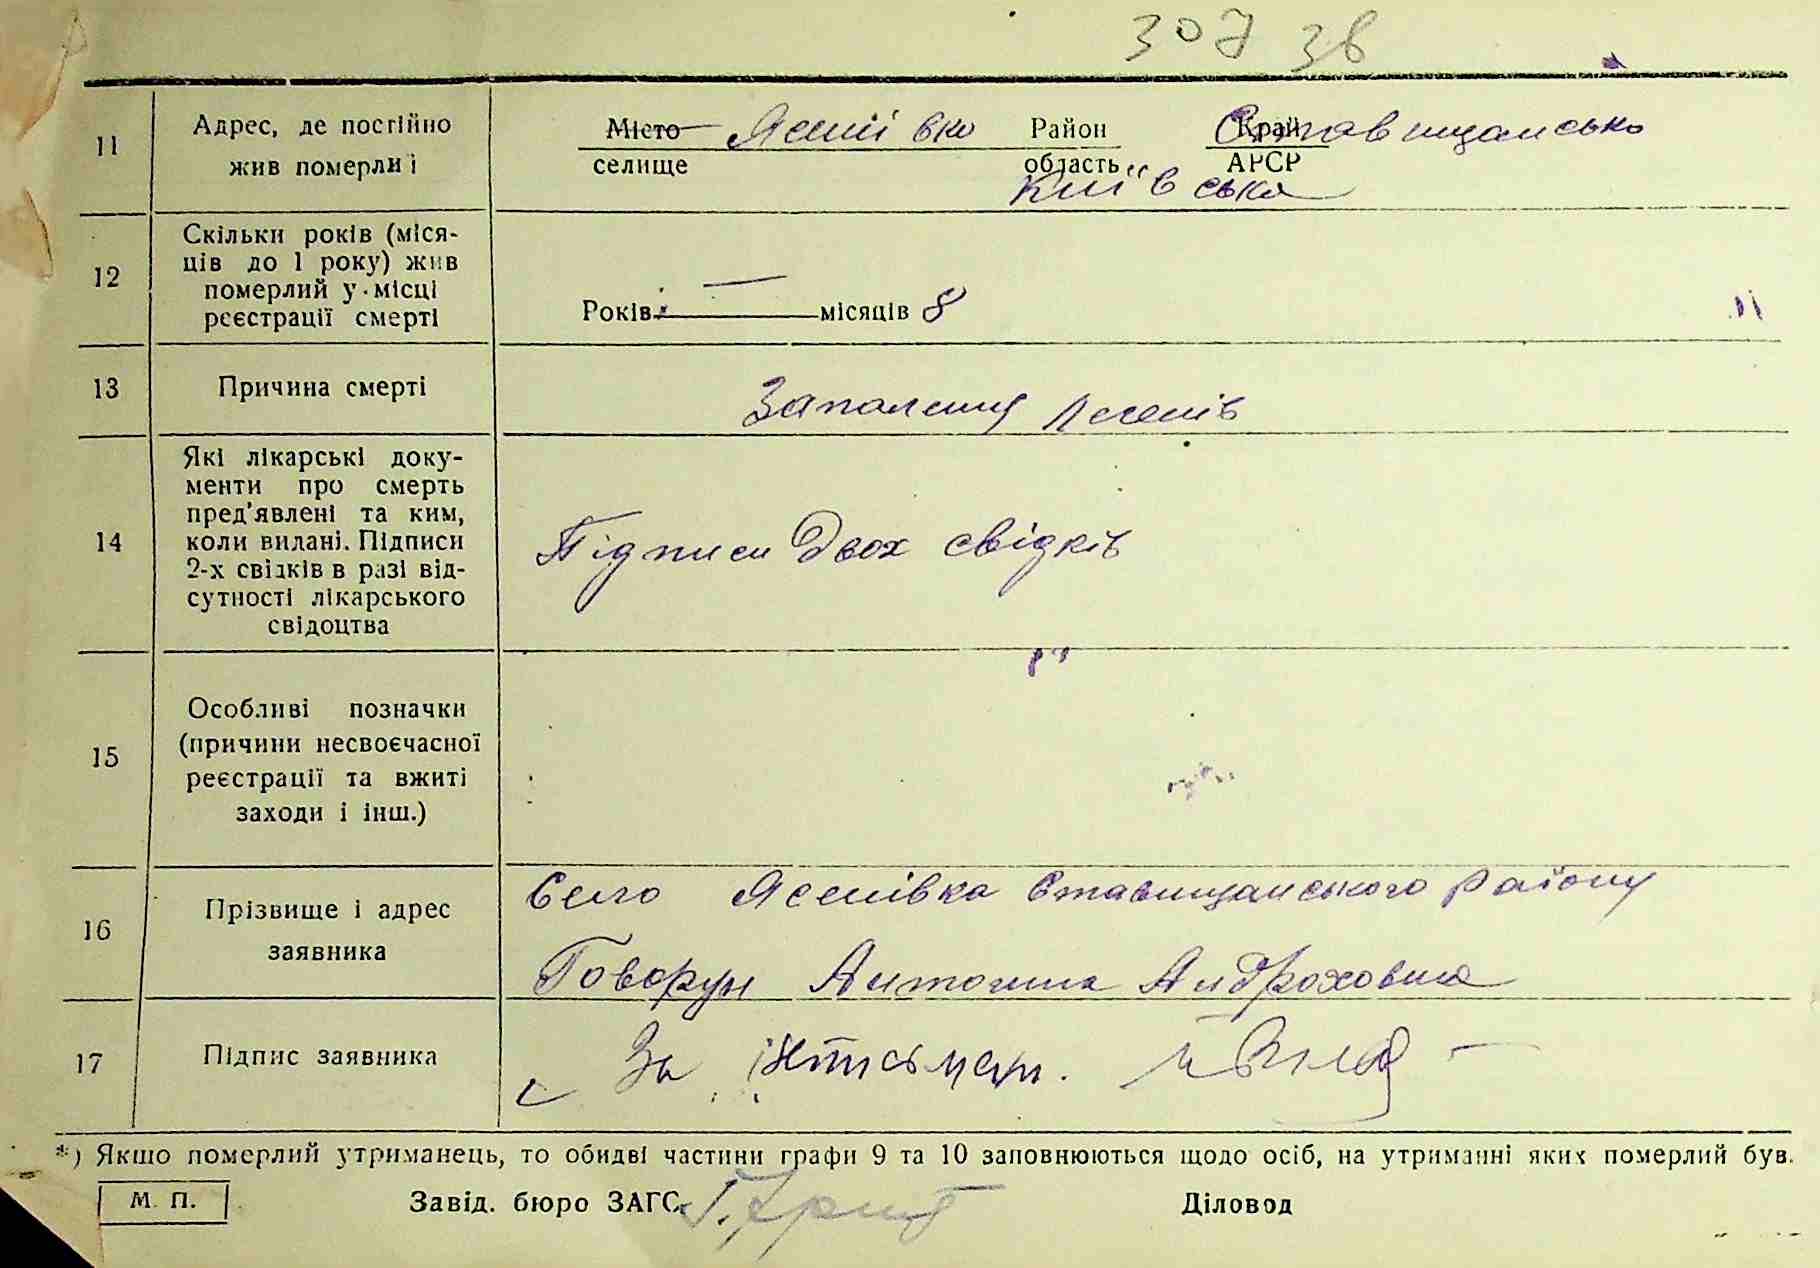 307 38
11
Адрес, де постійно
жив померлиі
Місто Ясенівка Район Край Ставищансько
селище область АРСР
Київська
12
Скільки років (міся-
ців до 1 року) жив
померлий у місці
реєстрації смерті
Років — місяців 8
13
Причина смерті
Запалення легенів
14
Які лікарські доку-
менти про смерть
пред'явлені та ким,
коли видані. Підписи
2-х свідків в разі від-
сутності лікарського
свідоцтва
Підписи двох свідків
15
Особливі позначки
(причини несвоєчасної
реєстрації та вжиті
заходи і інш.)
16
Прізвище і адрес
заявника
Село Ясенівка Ставищанського району
Говорун Антонина Андроховна
17
Підпис заявника
За
*) Якшо померлий утриманець, то обидві частини графи 9 та 10 заповнюються щодо осіб, на утриманні яких померлий був.
М. П.
Завід. бюро ЗАГС
Діловод